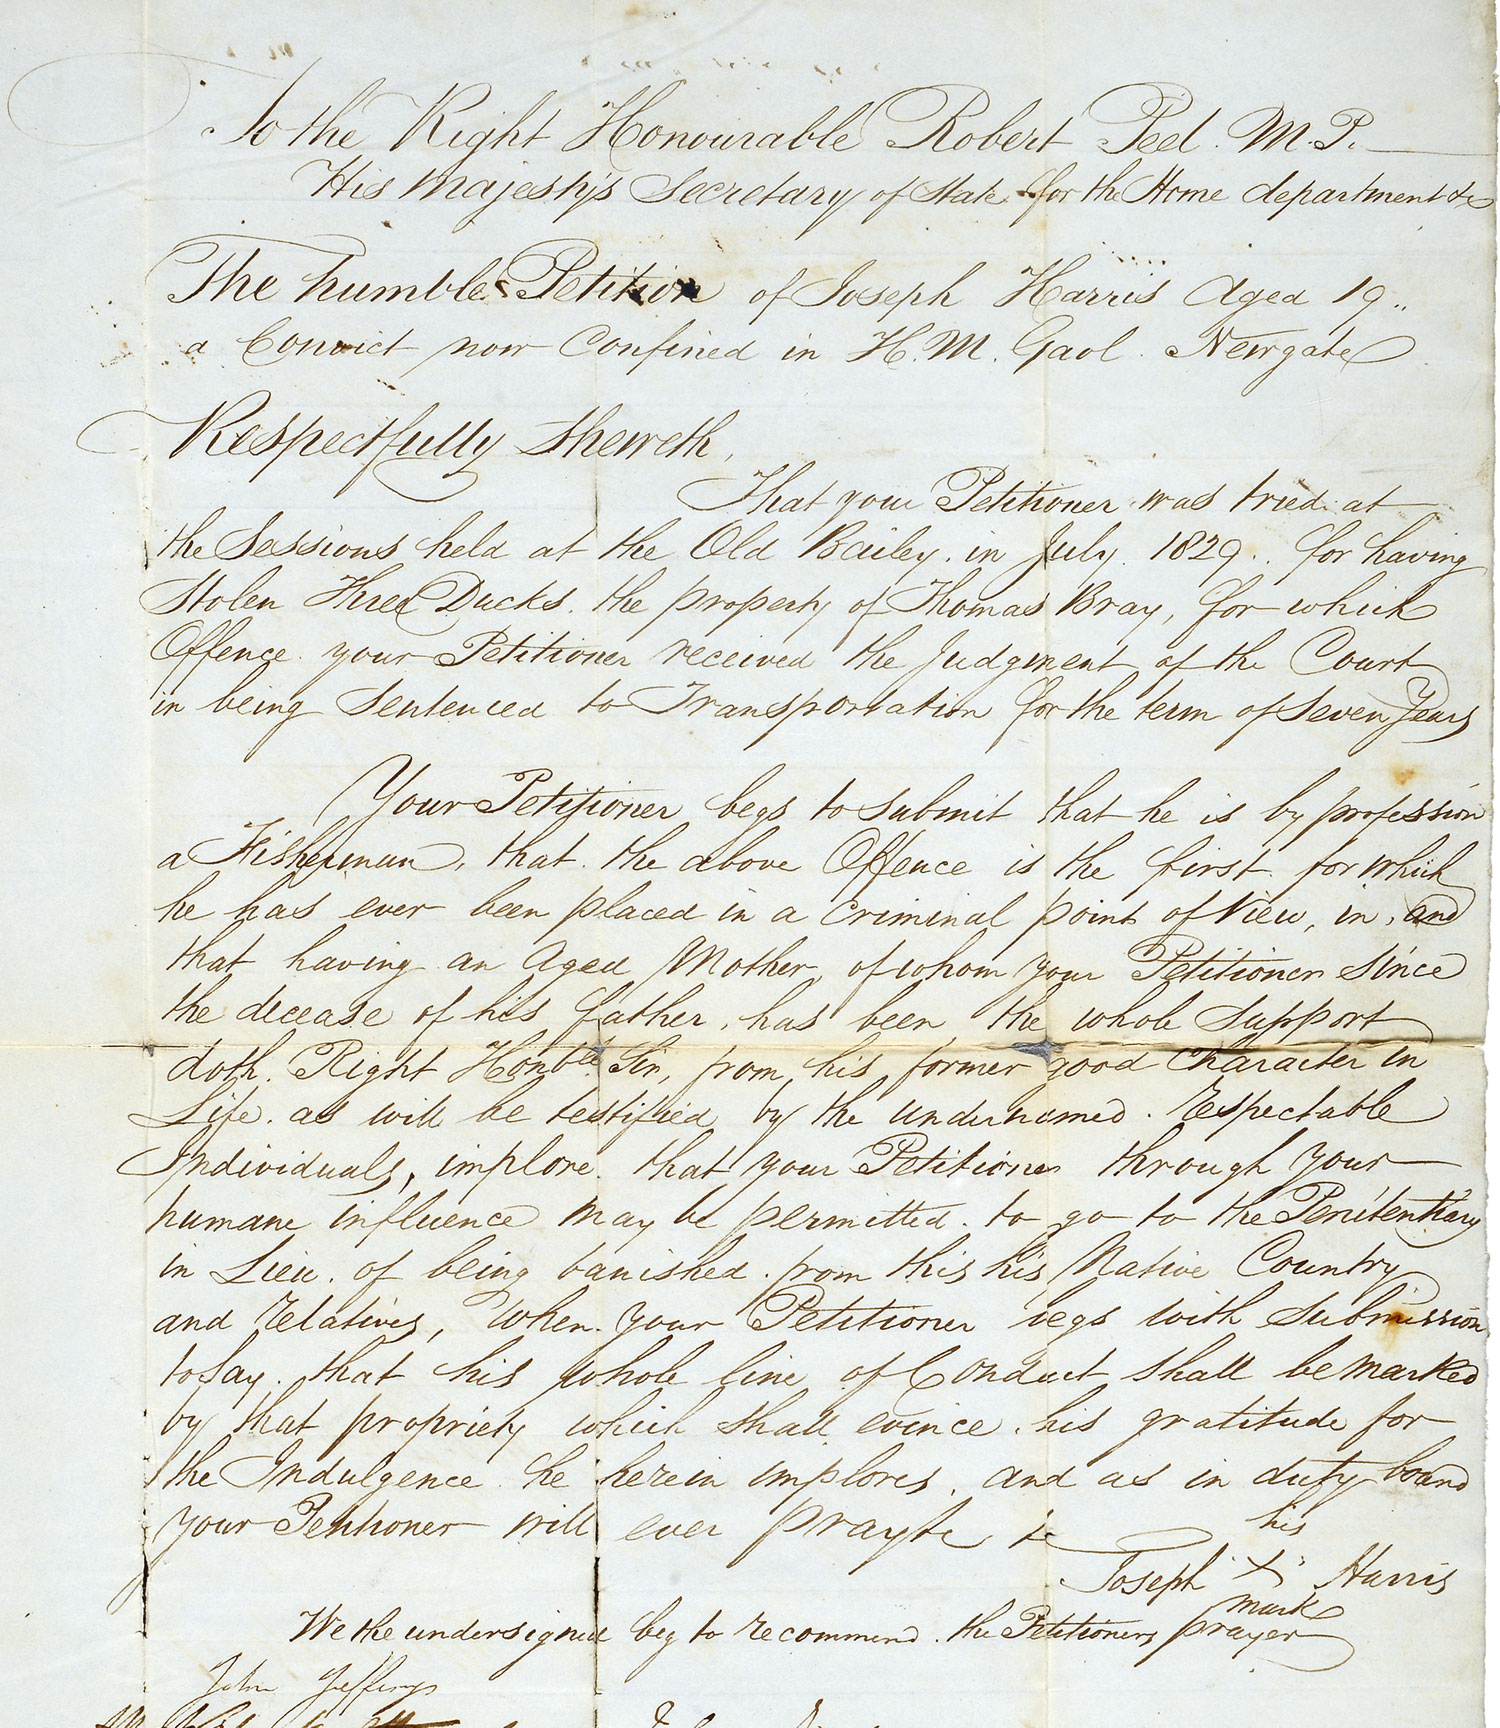 To the Right Honourable Robert Peel. M.P.
His Majesty's Secretary of State for the Home department &c
The humble Petition of Joseph Harris Aged 19..
a Convict now Confined in H.M. Gaol. Newgate
Respectfully Sheweth,
That your Petitioner was tried at
the Sessions held at the Old Bailey. in July. 1829. for having
Stolen Three Ducks. the property of Thomas Bray, for which
Offence your Petitioner received the Judgment of the Court
in being Sentenced to Transportation for the term of Seven Years
Your Petitioner begs to submit that he is by profession
a Fisherman, that the above Offence is the first for which
he has ever been placed in a Criminal point of View, in, and
that having an Aged Mother, of whom your Petitioner Since
the decease of his father, has been the whole Support
doth. Right Honble Sir, from his former good Character in
Life. as will be testified by the undernamed. respectable
Individuals, implore that your Petitioner through your
humane influence may be permitted. to go to the Penitentiary
in Lieu. of being banished. from this his Native Country
and relatives, When your Petitioner begs with Submission
to Say. that his whole line of Conduct shall be marked
by that propriety which shall evince his gratitude for
the Indulgence he herein implores, and as in duty bound
your Petitioner will ever pray &c &c
his
Joseph "X" Harris
mark
We the undersigned beg to recommend. the Petitioners prayer
John Jeffings